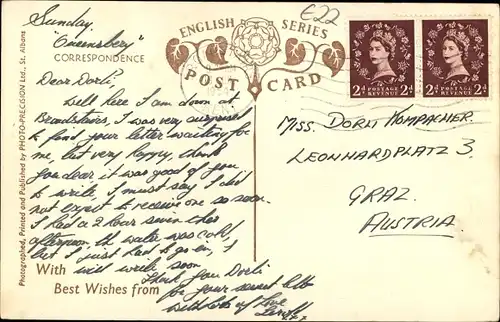 Sunday.
"Queensbery"
£22
ENGLISH SERIES
CORRESPONDENCE
POST CARD
POSTAGE REVENUE
2D 2D
POSTAGE REVENUE
2D 2D
Photographed, Printed and Published by PHOTO-PRECISION Ltd., St. Albans
Dear Dorli,
Well here I am down at
Broadstairs, I was very surprised
to find your letter waiting for
me, but very happy, thank
you dear it was good of you
to write, I must say I did
not expect to receive one so soon.
I had a 2 hour swim this
afternoon, the water was cold,
but I just had to go in, I
will write soon
Thank you Dorli
for your sweet
With lots of love
With
Best Wishes from
MISS. DORLI KOMPACHER
LEONHARDPLATZ 3.
GRAZ.
AUSTRIA